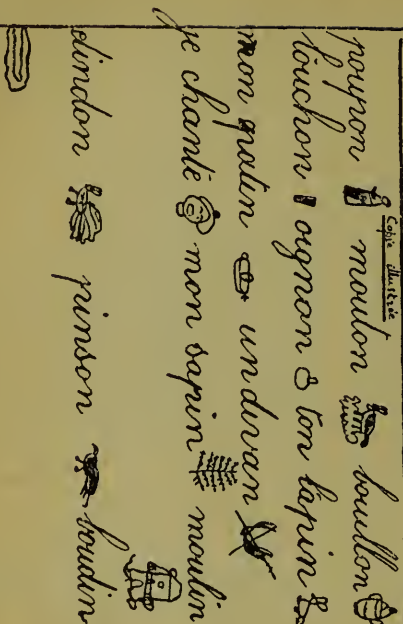 Copie illustrée
poupon mouton bouillon
bouchon oignon ton lapin
mon patin un divan
je chante mon sapin moulin
dindon pinson boudin